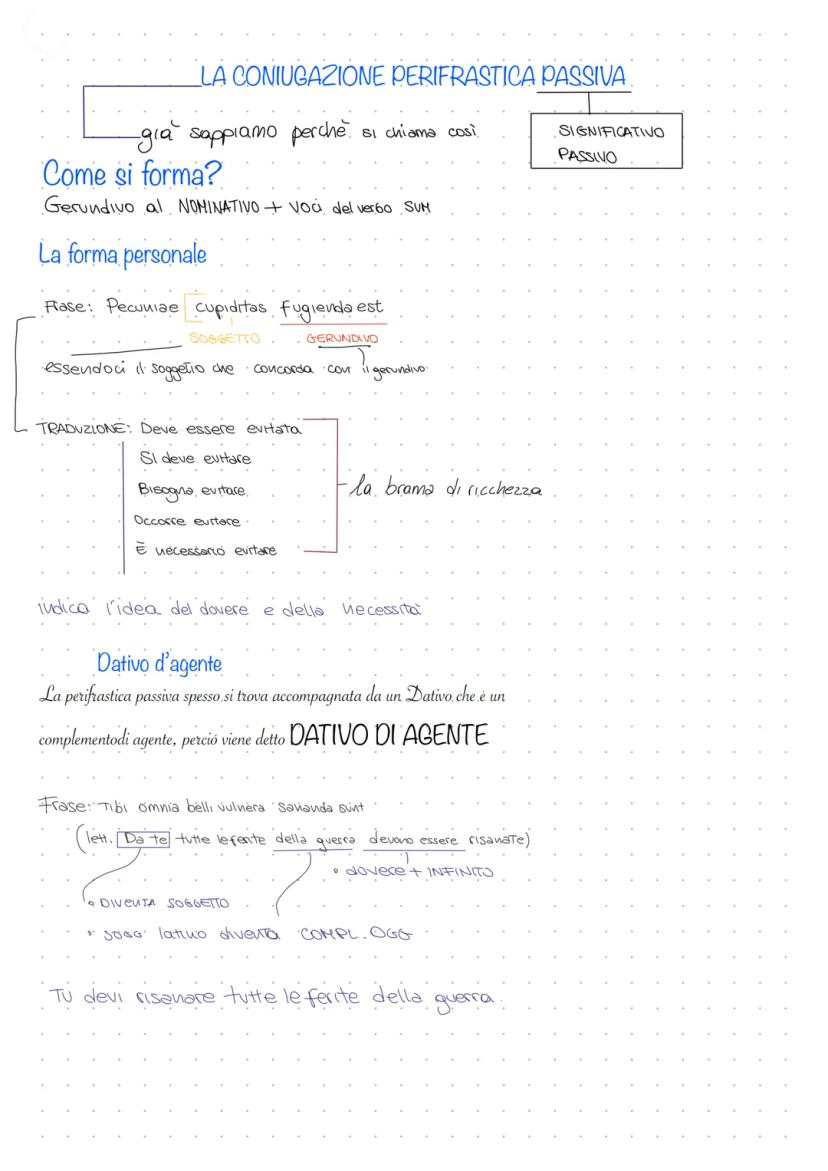 LA CONIUGAZIONE PERIFRASTICA PASSIVA
già sappiamo perchè si chiama così
SIGNIFICATIVO
PASSIVO
Come si forma?
Gerundivo al NOMINATIVO + voci del verbo SUM
La forma personale
Frase: Pecuniae cupiditas fugienda est
SOGGETTO GERUNDIVO
essendoci il soggetto che concorda con il gerundivo
TRADUZIONE: Deve essere evitata
Si deve evitare
Bisogna evitare
Occorre evitare
È necessario evitare
la brama di ricchezza
indica l'idea del dovere e della necessità
Dativo d'agente
La perifrastica passiva spesso si trova accompagnata da un Dativo che è un
complementodi agente, perciò viene detto DATIVO DI AGENTE
Frase: Tibi omnia belli vulnera sananda sunt
(lett. Da te tutte le ferite della guerra devono essere risanate)
dovere + INFINITO
DIVENTA SOGGETTO
sogg latino diventa COMPL. OGG
Tu devi risanare tutte le ferite della guerra.